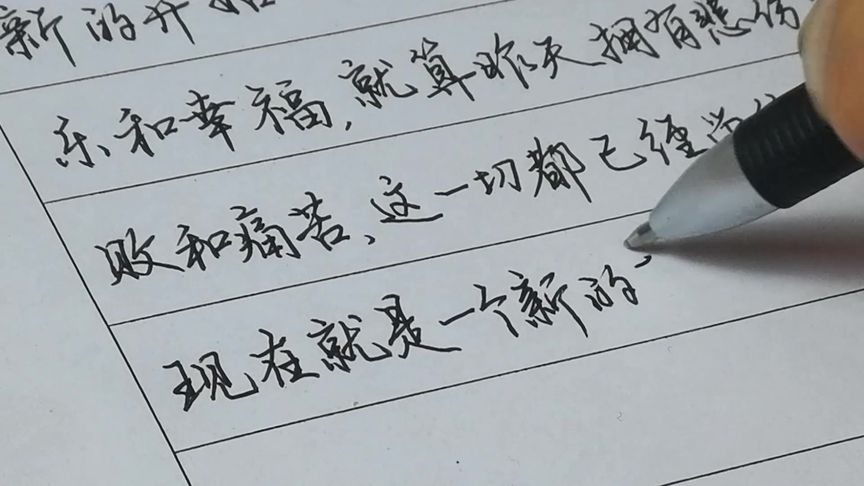 新的开始
乐和幸福,就算昨天拥有悲伤
败和痛苦,这一切都已经
现在就是一个新的